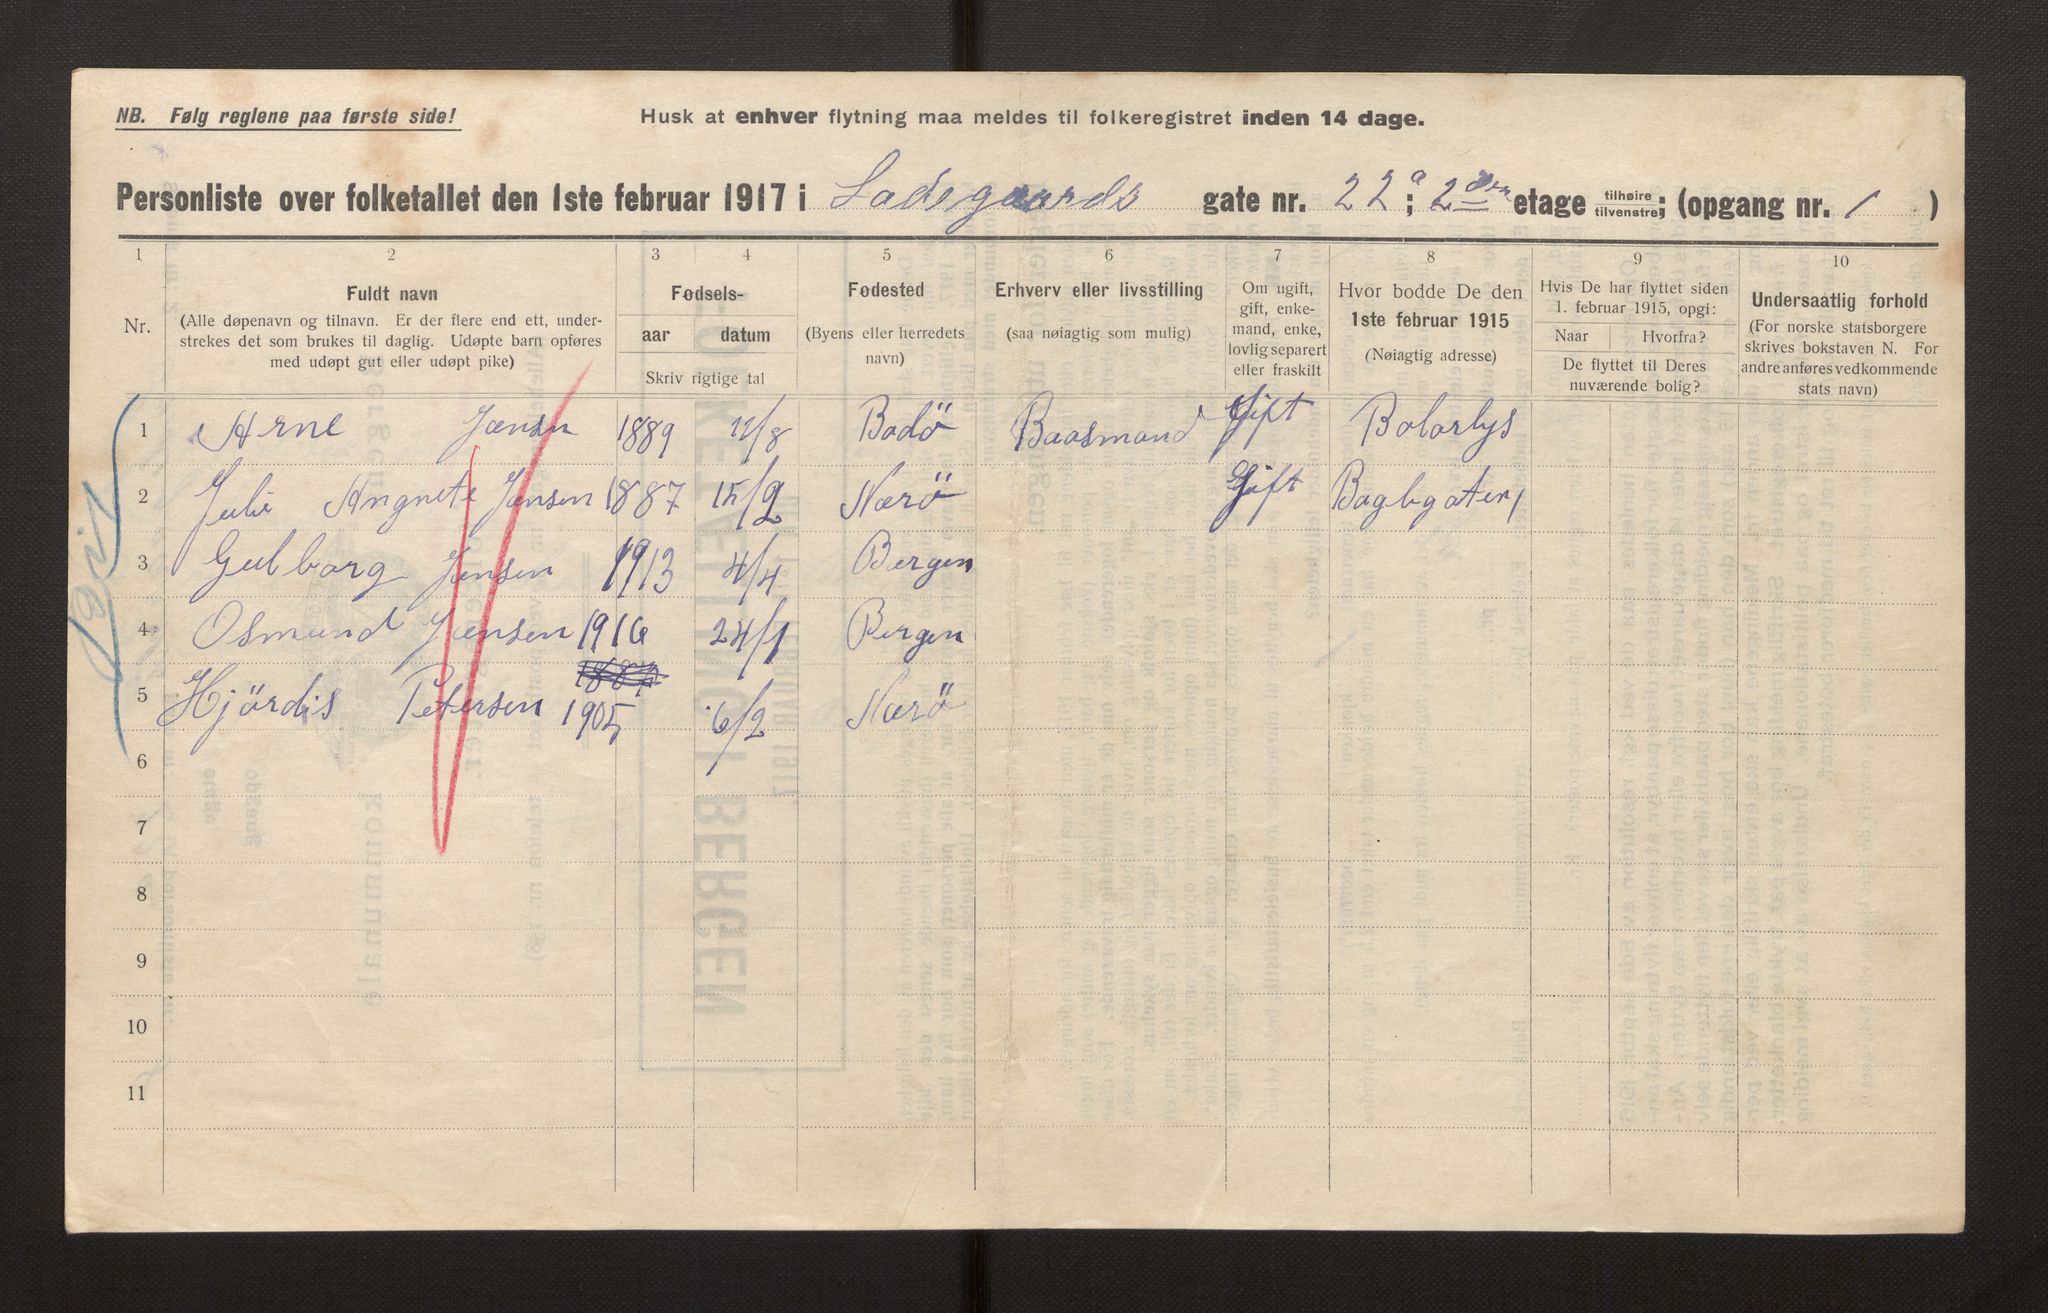 NB. Følg reglene paa første side!
Husk at enhver flytning maa meldes til folkeregistret inden 14 dage.
Personliste over folketallet den 1ste februar 1917 i Ladegaards gate nr. 22 a ; 2 den etage tilhøire tilvenstre; (opgang nr. 1 )
1 2 3 4 5 6 7 8 9 10
Nr.
Fuldt navn
(Alle døpenavn og tilnavn. Er der flere end ett, under-
strekes det som brukes til daglig. Udøpte barn opføres
med udøpt gut eller udøpt pike)
Fødsels-
aar datum
Skriv rigtige tal
Fødested
(Byens eller herredets
navn)
Erhverv eller livsstilling
(saa nøiagtig som mulig)
Om ugift,
gift, enke-
mand, enke,
lovlig separert
eller fraskilt
Hvor bodde De den
1ste februar 1915
(Nøiagtig adresse)
Hvis De har flyttet siden
1. februar 1915, opgi:
Naar Hvorfra?
De flyttet til Deres
nuværende bolig?
Undersaatlig forhold
(For norske statsborgere
skrives bokstaven N. For
andre anføres vedkommende
stats navn)
1 Arne Jensen 1889 11/8 Bodö Baasmand Gift
2 Julie Angnete Jensen 1887 15/2 Nærö Gift
3 Gulborg Jensen 1913 4/4 Bergen
4 Osmund Jensen 1916 24/1 Bergen
5 Hjördis Petersen 1905 6/2 Nærö
6
7
8
9
10
11